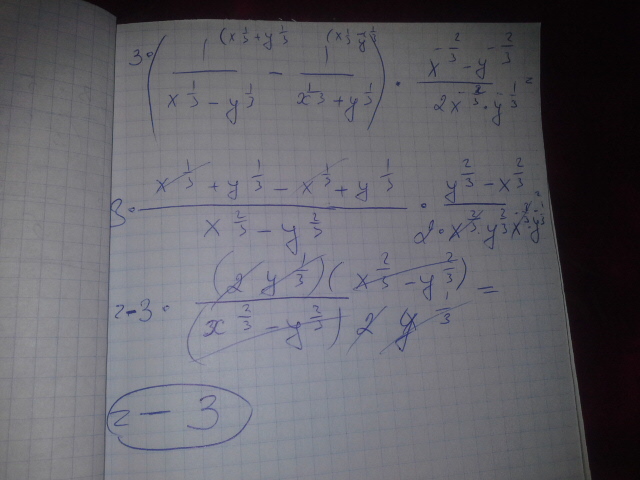 3·(1/(x^{1/3} - y^{1/3}) (x^{1/3} + y^{1/3} - 1/(x^{1/3} + y^{1/3}) (x^{1/3} - y^{1/3})) · (x^{-2/3} - y^{-2/3})/(2x^{-2/3} · y^{-1/3}) =
3· (x^{1/3} + y^{1/3} - x^{1/3} + y^{1/3})/(x^{2/3} - y^{2/3}) · (y^{2/3} - x^{2/3})/(2 · x^{2/3} y^{2/3} x^{-2/3} y^{-1/3}) =
= -3· ((2 y^{1/3})(x^{2/3} - y^{2/3}))/((x^{2/3} - y^{2/3}) 2 y^{1/3}) =
= - 3